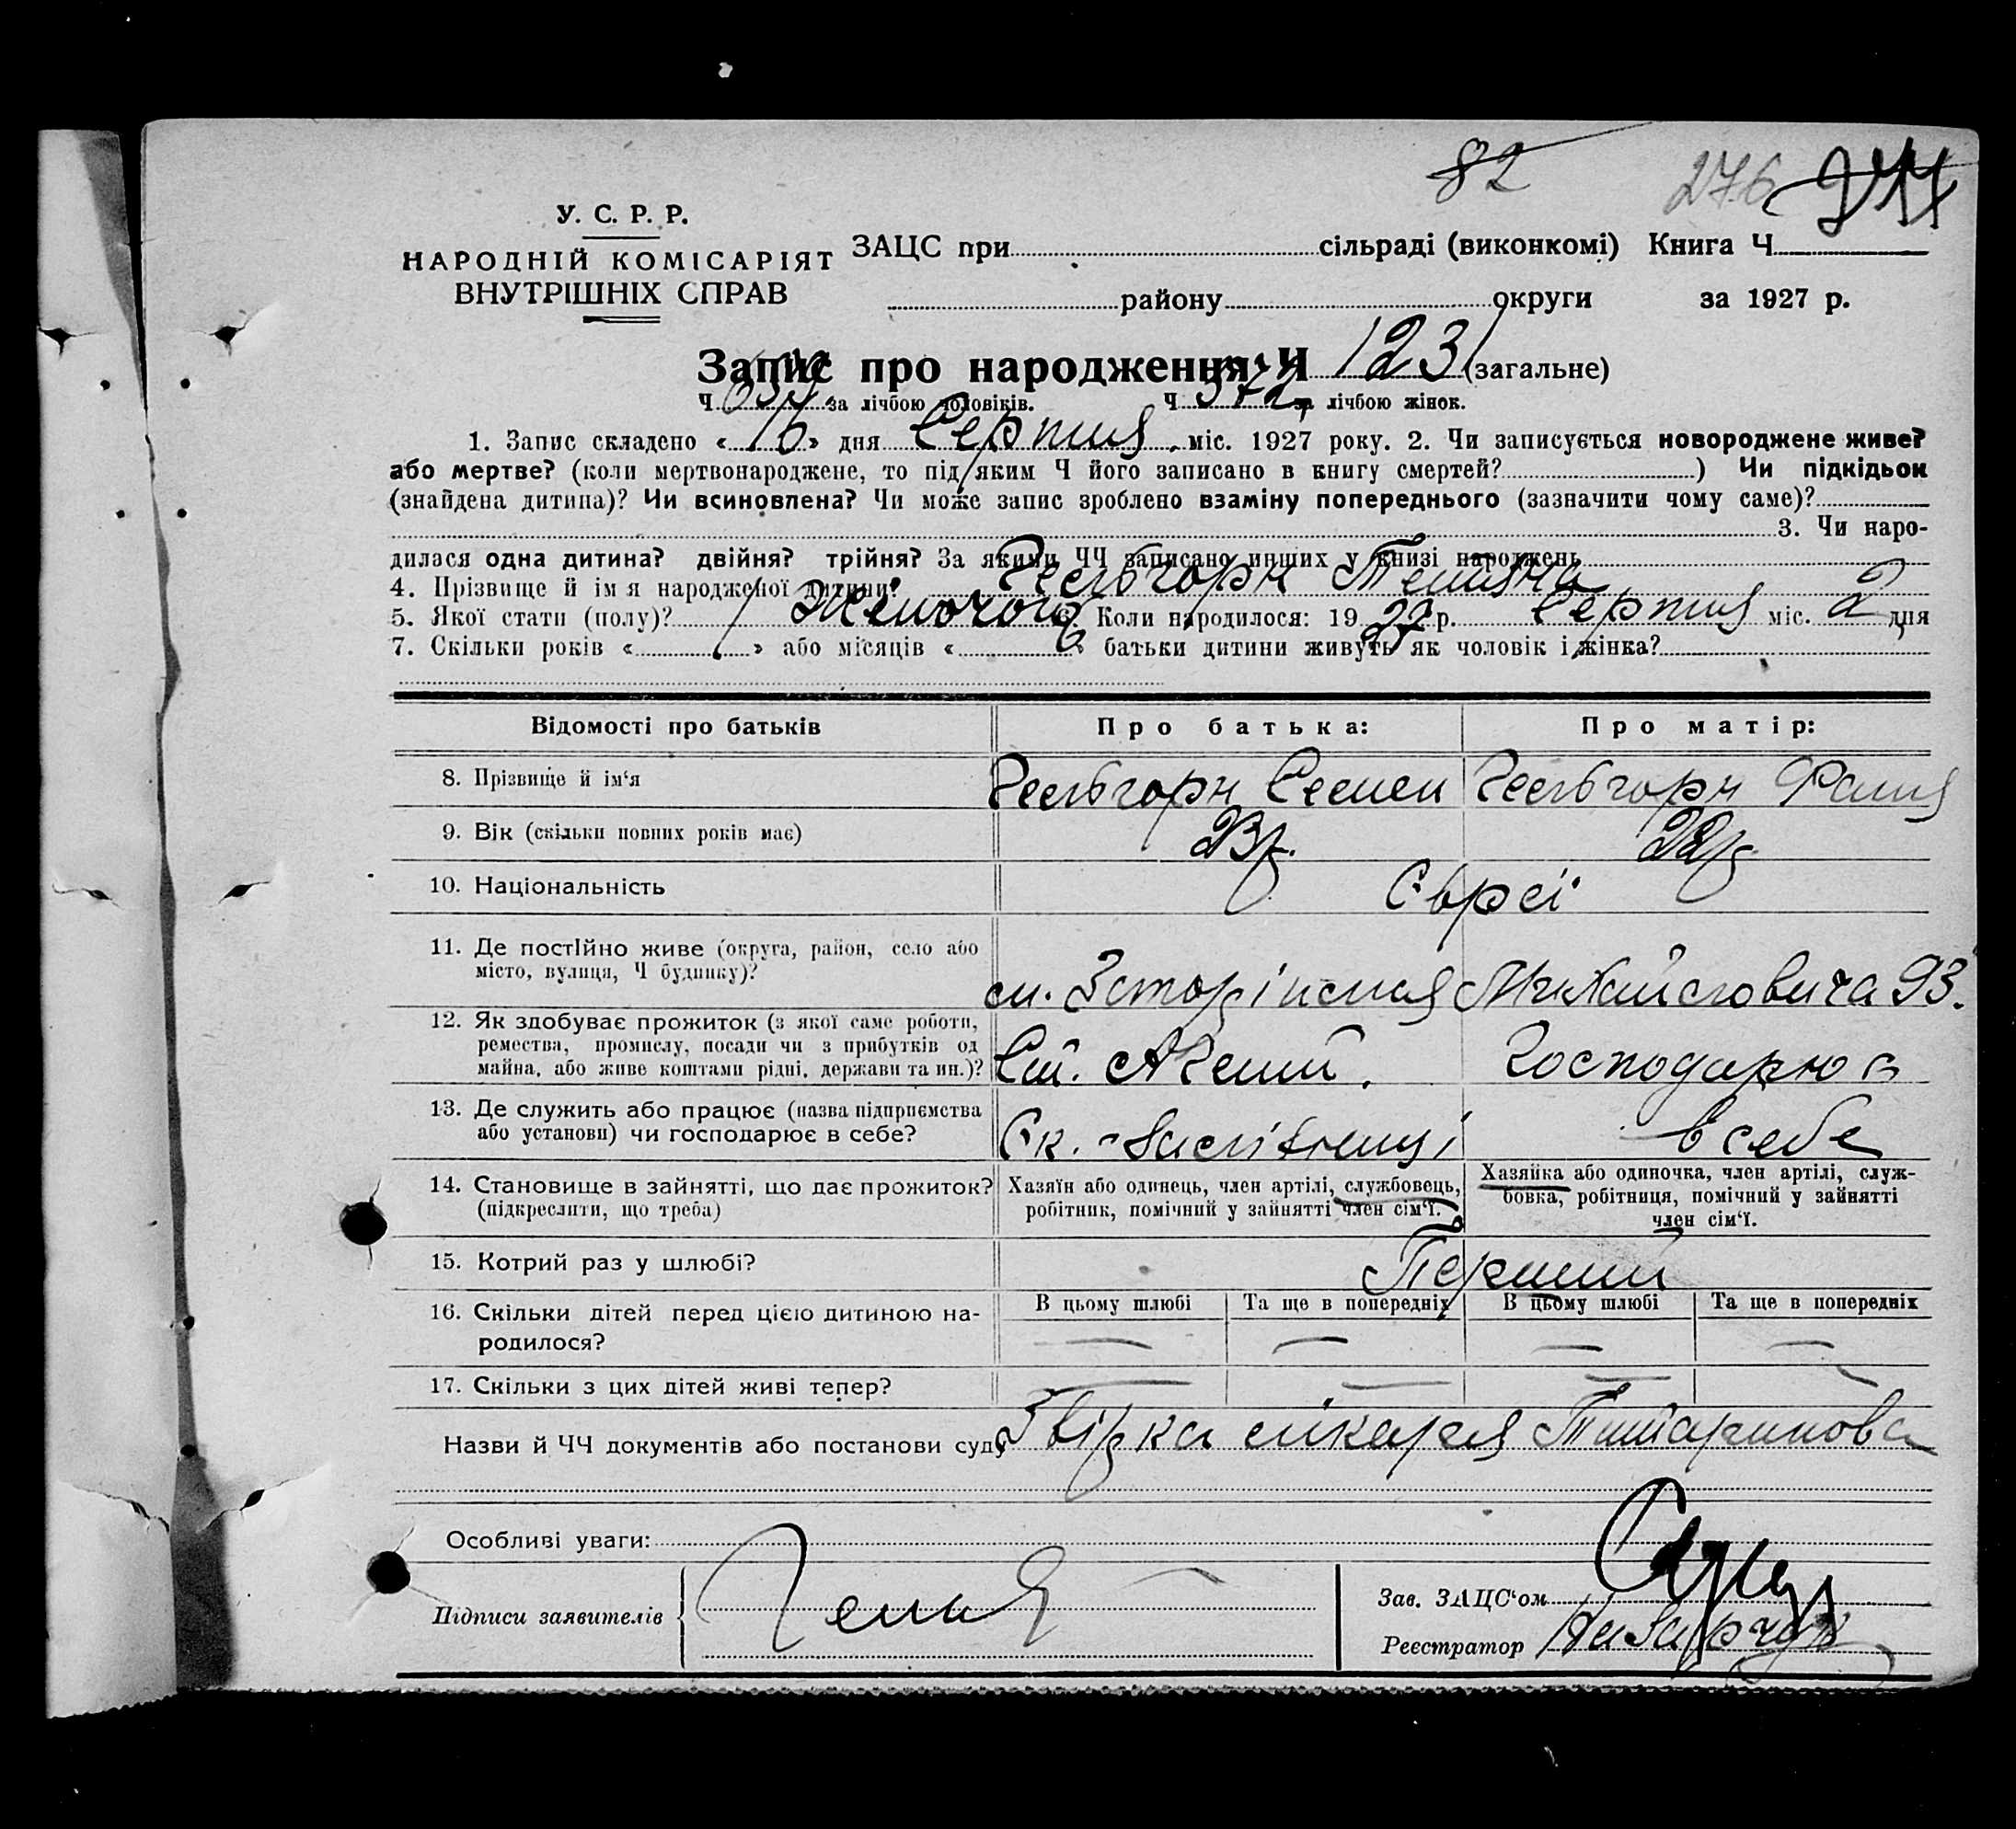 82 276 277
У. С. Р. Р.
НАРОДНІЙ КОМІСАРІЯТ
ВНУТРІШНІХ СПРАВ
ЗАЦС при сільраді (виконкомі) Книга Ч
району округи за 1927 р.
Запис про народження Ч 1231 (загальне)
Ч 659 за лічбою чоловіків. Ч 572 за лічбою жінок.
1. Запис складено «16» дня Серпня міс. 1927 року. 2. Чи записується новороджене живе?
або мертве? (коли мертвонароджене, то під яким Ч його записано в книгу смертей? ) Чи підкідьок
(знайдена дитина)? Чи всиновлена? Чи може запис зроблено взаміну попереднього (зазначити чому саме)?
3. Чи наро-
дилася одна дитина? двійня? трійня? За якими ЧЧ записано инших у книзі народжень
4. Прізвище й імя народженої дитини? Гельбгорн
5. Якої стати (полу)? Жіночої 6. Коли народилося: 1927 р. Серпня міс. 2 дня
7. Скільки років « » або місяців « » батьки дитини живуть як чоловік і жінка?
Відомості про батьків Про батька: Про матір:
8. Прізвище й ім‘я Гельбгорн Семен Гельбгорн Фаня
9. Вік (скільки повних років має) 23 р. 22 р.
10. Національність Євреї
11. Де постІйно живе (округа, район, село або
місто, вулиця, Ч будинку)? 93.
12. Як здобуває прожиток (з якої саме роботи,
ремества, промислу, посади чи з прибутків од
майна, або живе коштами рідні, держави та ин.)? Агент. Господарює
13. Де служить або працює (назва підприємства
або установи) чи господарює в себе? в себе
14. Становище в зайнятті, що дає прожиток?
(підкреслити, що треба)
Хазяїн або одинець, член артілі, службовець,
робітник, помічний у зайнятті член сім‘ї.
Хазяйка або одиночка, член артілі, служ-
бовка, робітниця, помічний у зайнятті
член сім‘ї.
15. Котрий раз у шлюбі? Перший
16. Скільки дітей перед цією дитиною на-
родилося?
В цьому шлюбі Та ще в попередніх В цьому шлюбі Та ще в попередніх
— — — —
17. Скільки з цих дітей живі тепер? — — — —
Назви й ЧЧ документів або постанови суду Звірка лікаря
Особливі уваги:
Підписи заявителів
Зав. ЗАЦС‘ом
Реєстратор